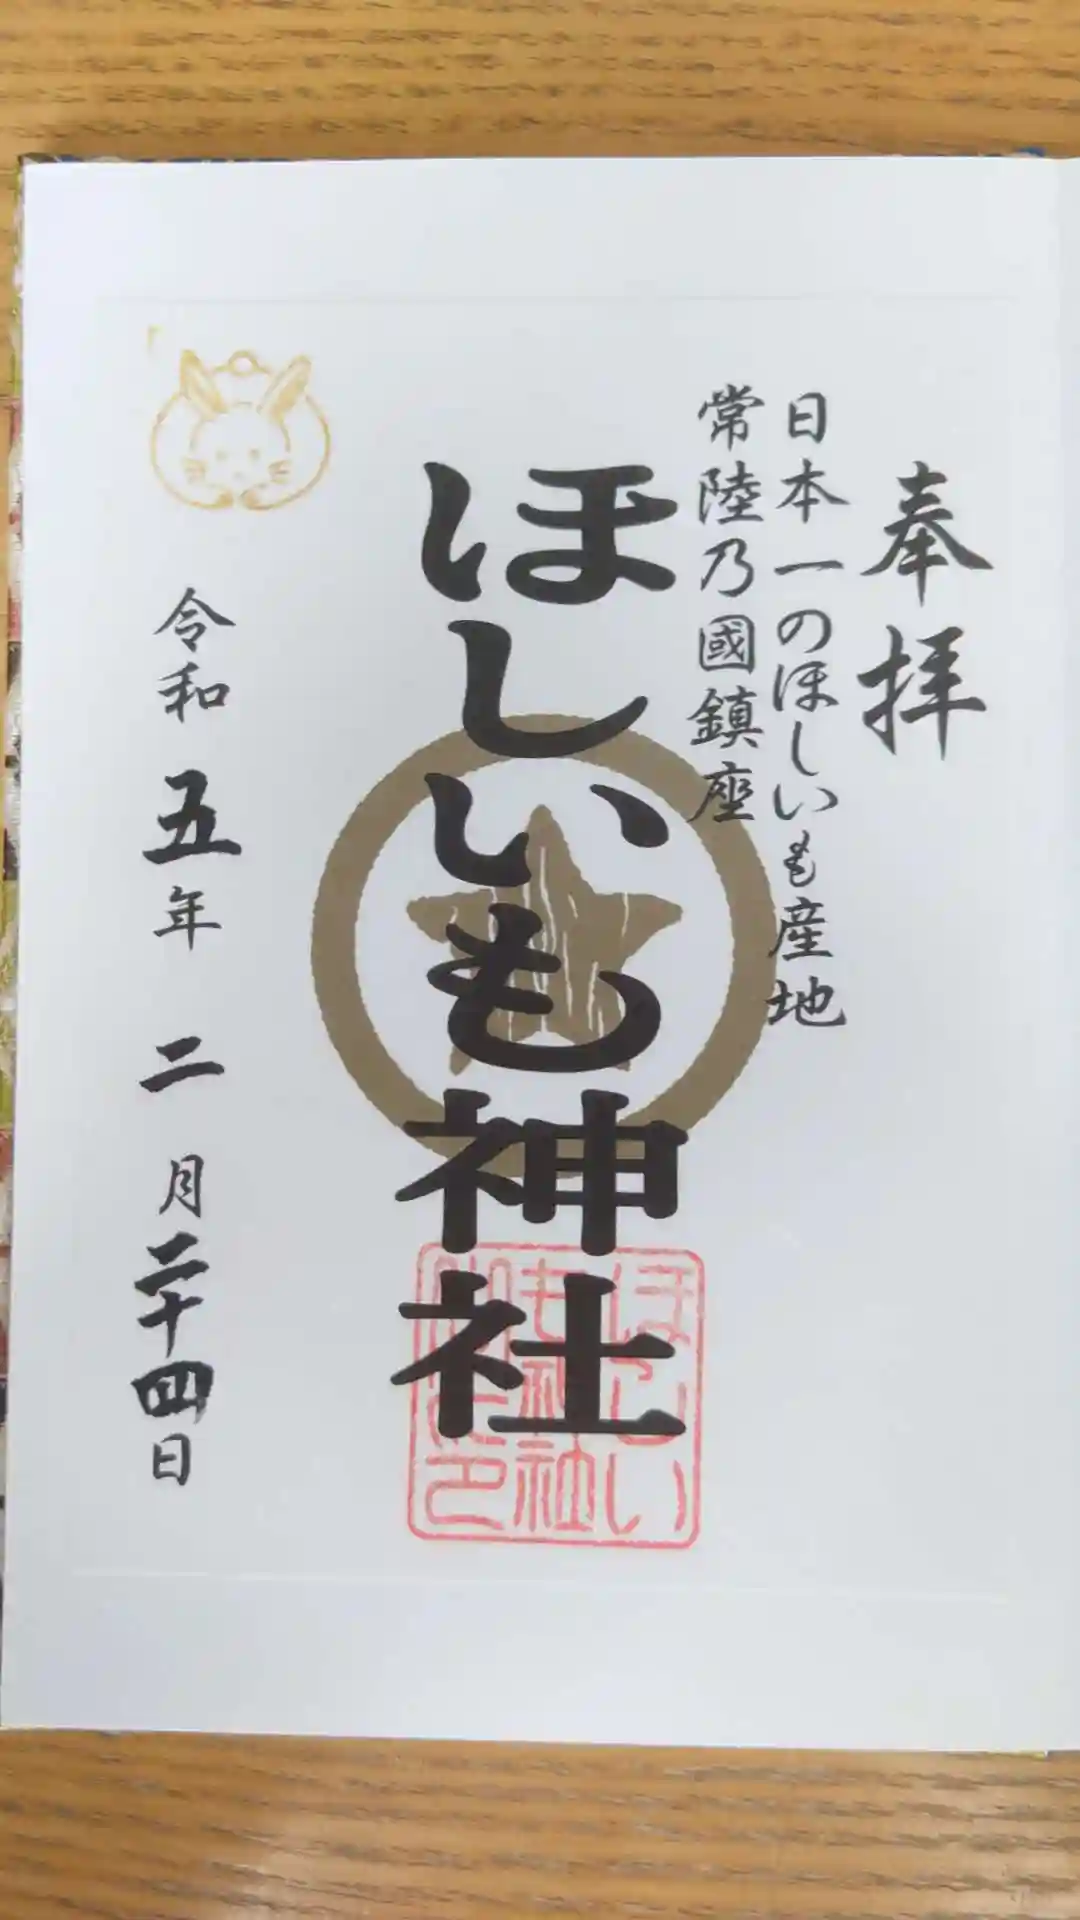 奉拝
日本一のほしいも産地
常陸乃國鎮座
ほしいも神社
ほしい
も神社
令和五年二月二十四日